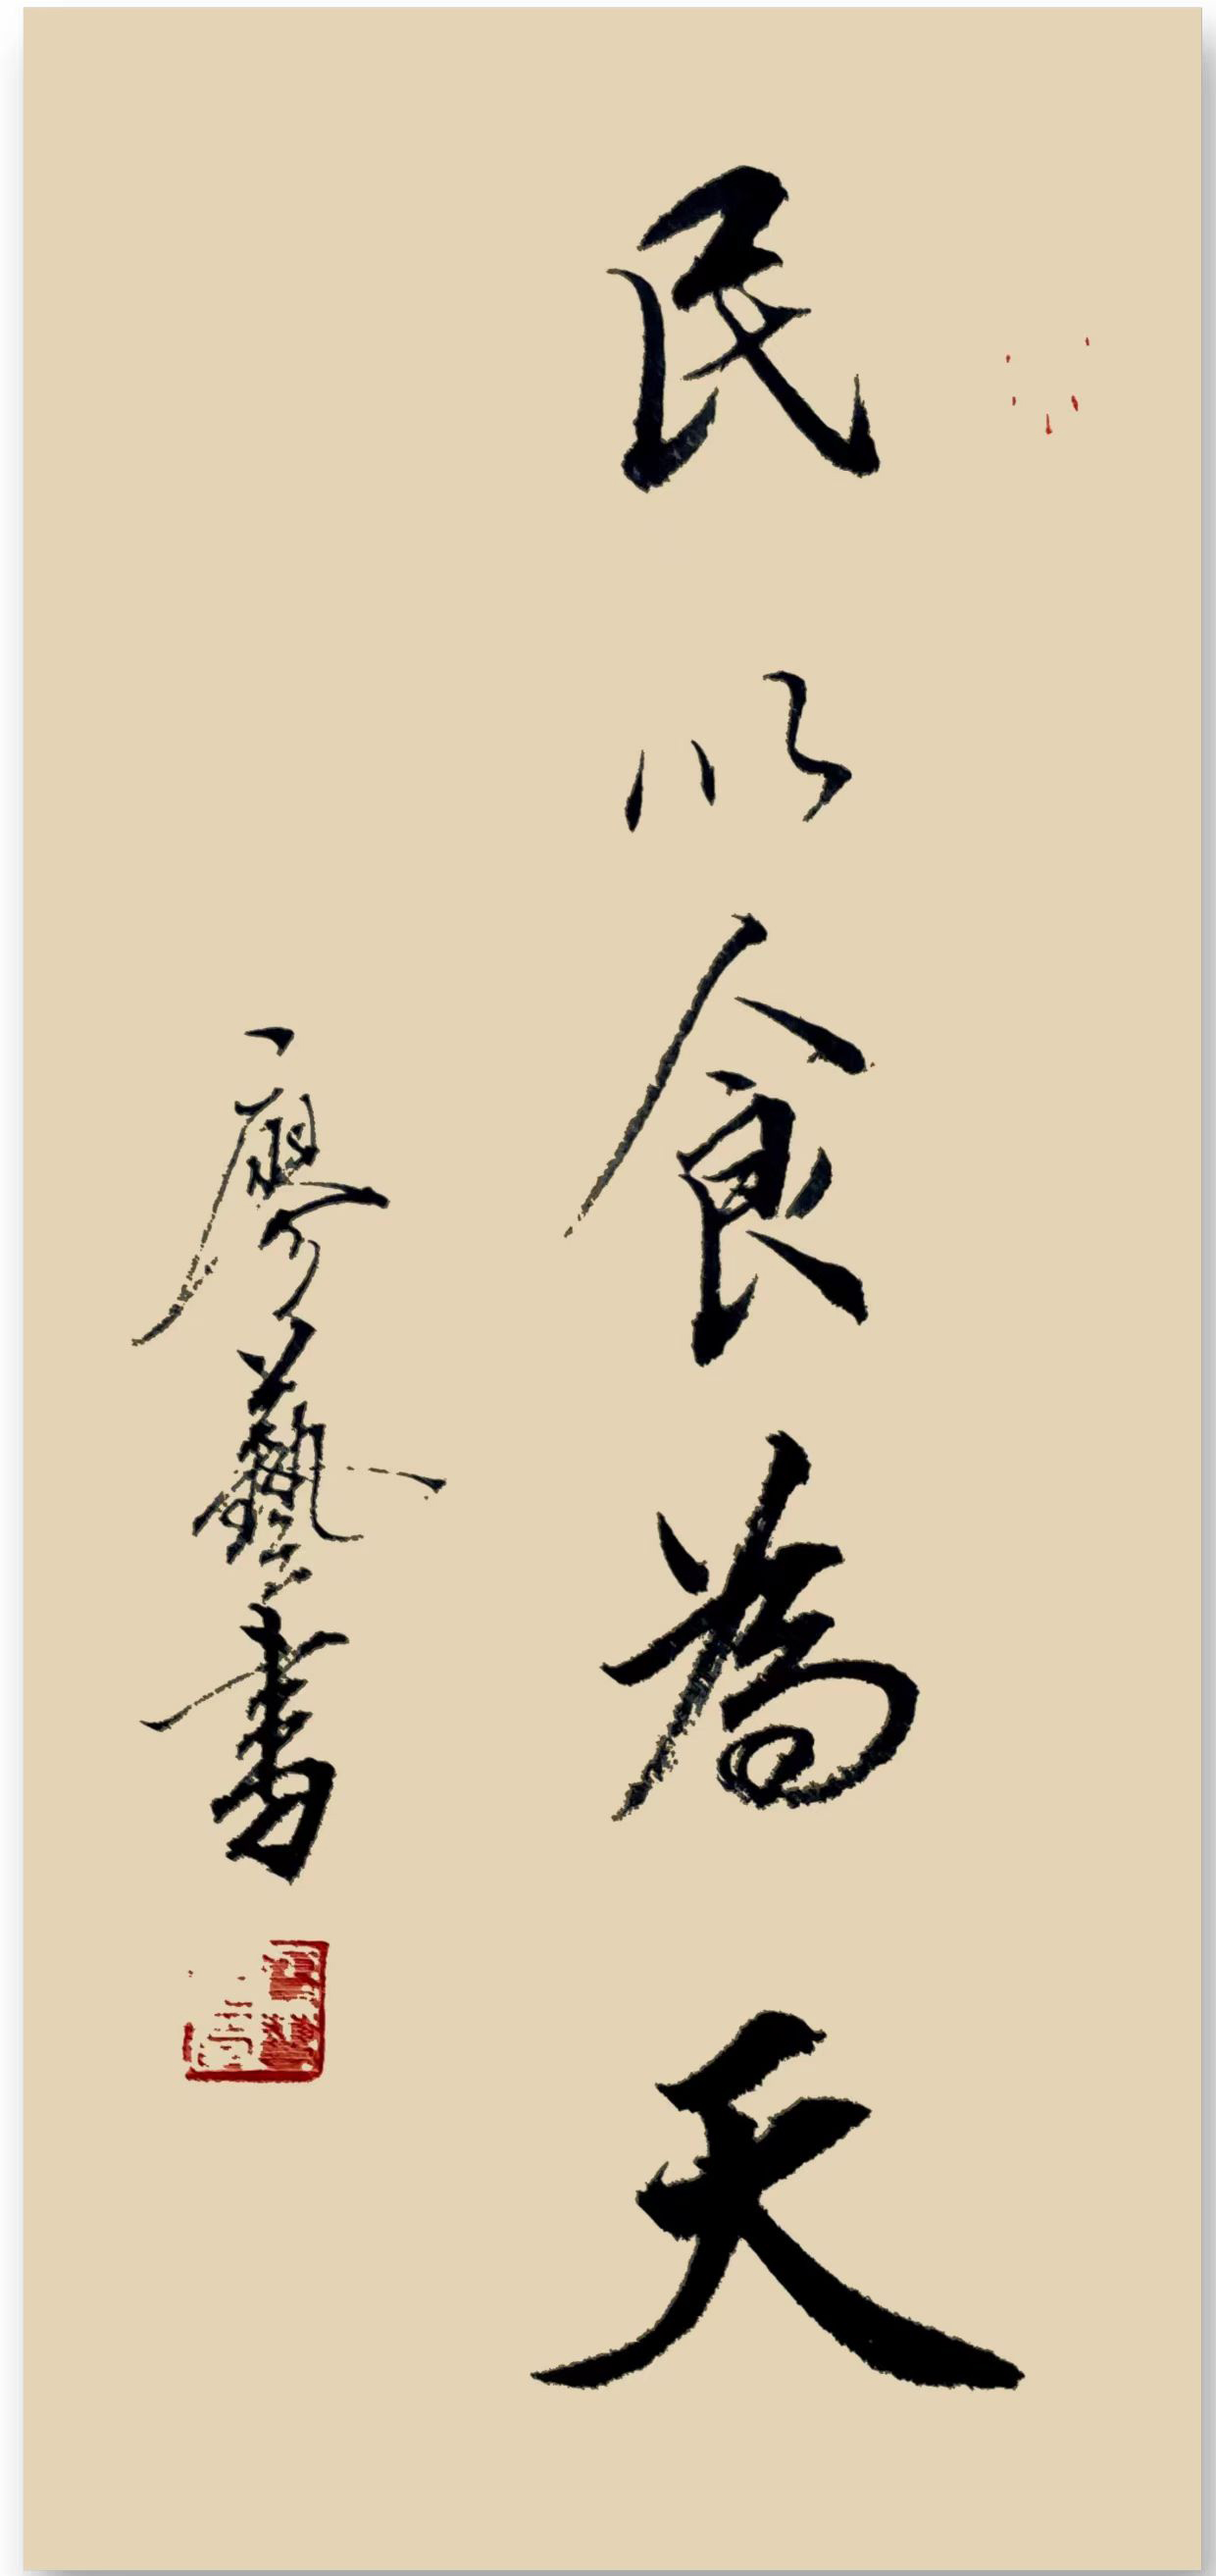 民以食為天
廖藝書